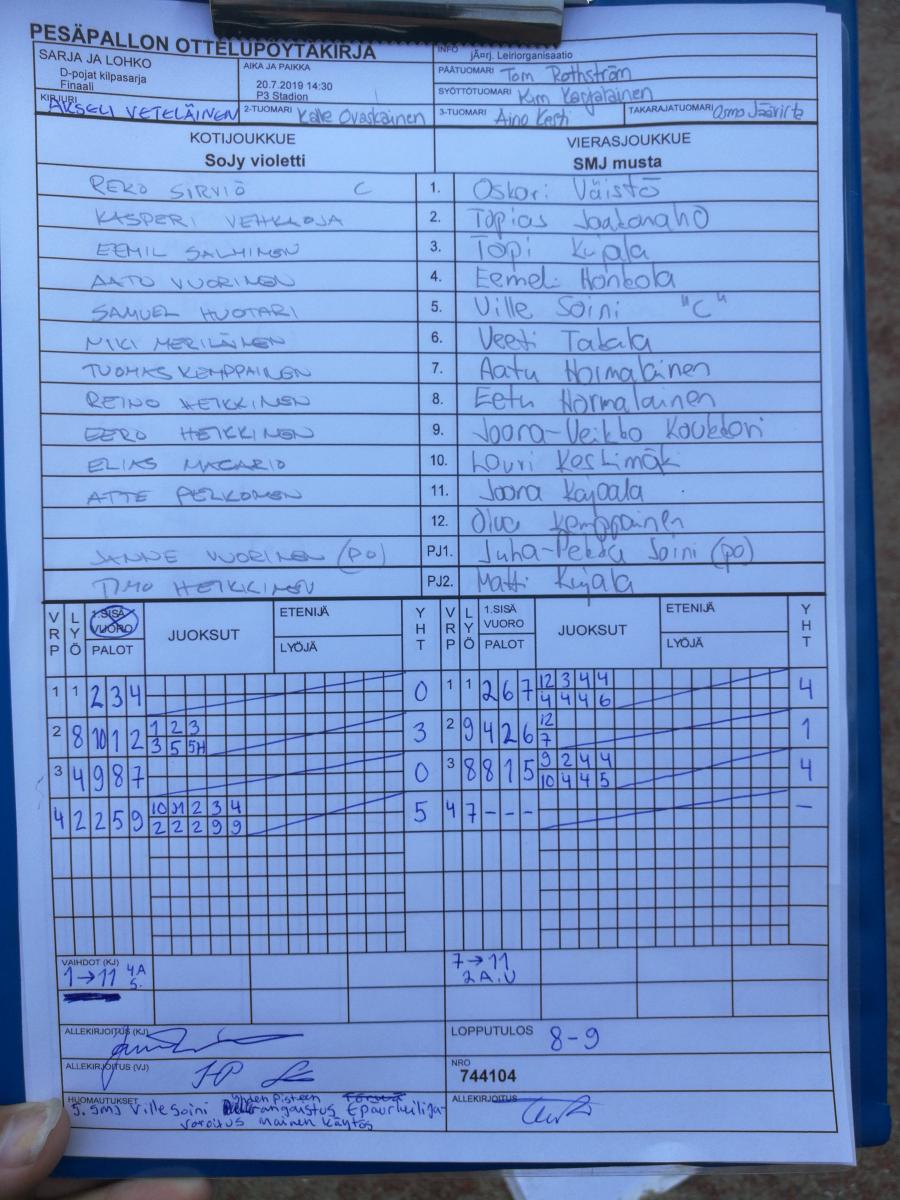 PESÄPALLON OTTELUPÖYTÄKIRJA
SARJA JA LOHKO
D-pojat kilpasarja
Finaali
AIKA JA PAIKKA
20.7.2019 14:30
P3 Stadion
INFO
jÄ¤rj. Leiriorganisaatio
PÄÄTUOMARI Tom Rothström
SYÖTTÖTUOMARI Kim Kastalainen
KIRJURI AKSELI VETELÄINEN
2-TUOMARI Kalle Ovaskainen
3-TUOMARI Aino Kesti
TAKARAJATUOMARI Osmo Jäävirta
KOTIJOUKKUE
SoJy violetti
VIERASJOUKKUE
SMJ musta
REKO SIRVIÖ C 1. Oskari Väistö
KASPERI VEHKAOJA 2. Topias Jaakonaho
EEMIL SALMINEN 3. Topi Kujala
AATU VUORINEN 4. Eemeli Honkola
SAMUEL HUOTARI 5. Ville Soini "C"
NIKI MERILÄINEN 6. Veeti Takala
TUOMAS KEMPPAINEN 7. Aatu Hormalainen
REINO HEIKKINEN 8. Eetu Hormalainen
EERO HEIKKINEN 9. Joona-Veikko
ELIAS MACARIO 10. Lauri
ATTE PELKONEN 11. Joona
12. Kemppainen
JANNE VUORINEN (PO) PJ1. Juha-Pekka Soini (PO)
TIMO HEIKKINEN PJ2. Matti Kujala
VRP LYÖ 1.SISÄ VUORO PALOT JUOKSUT ETENIJÄ LYÖJÄ YHT VRP LYÖ 1.SISÄ VUORO PALOT JUOKSUT ETENIJÄ LYÖJÄ YHT
1 1 2 3 4 0 1 1 2 6 7 12 3 4 4 4
4 4 4 6
2 8 10 1 2 1 2 3 3 2 9 4 2 6 12 1
3 5 5H 7
3 4 9 8 7 0 3 8 8 1 5 9 2 4 4 4
10 4 4 5
4 2 2 5 9 10 11 2 3 4 5 4 7 - - - -
2 2 2 9 9
VAIHDOT (KJ)
1→11 4A
S.
7→11
2A.U
ALLEKIRJOITUS (KJ)
LOPPUTULOS 8-9
ALLEKIRJOITUS (VJ)
NRO
744104
HUOMAUTUKSET
ALLEKIRJOITUS
Yhden Pisteen
5. SMJ Ville Soini rangaistus Epäurheilija-
varoitus mainen käytös